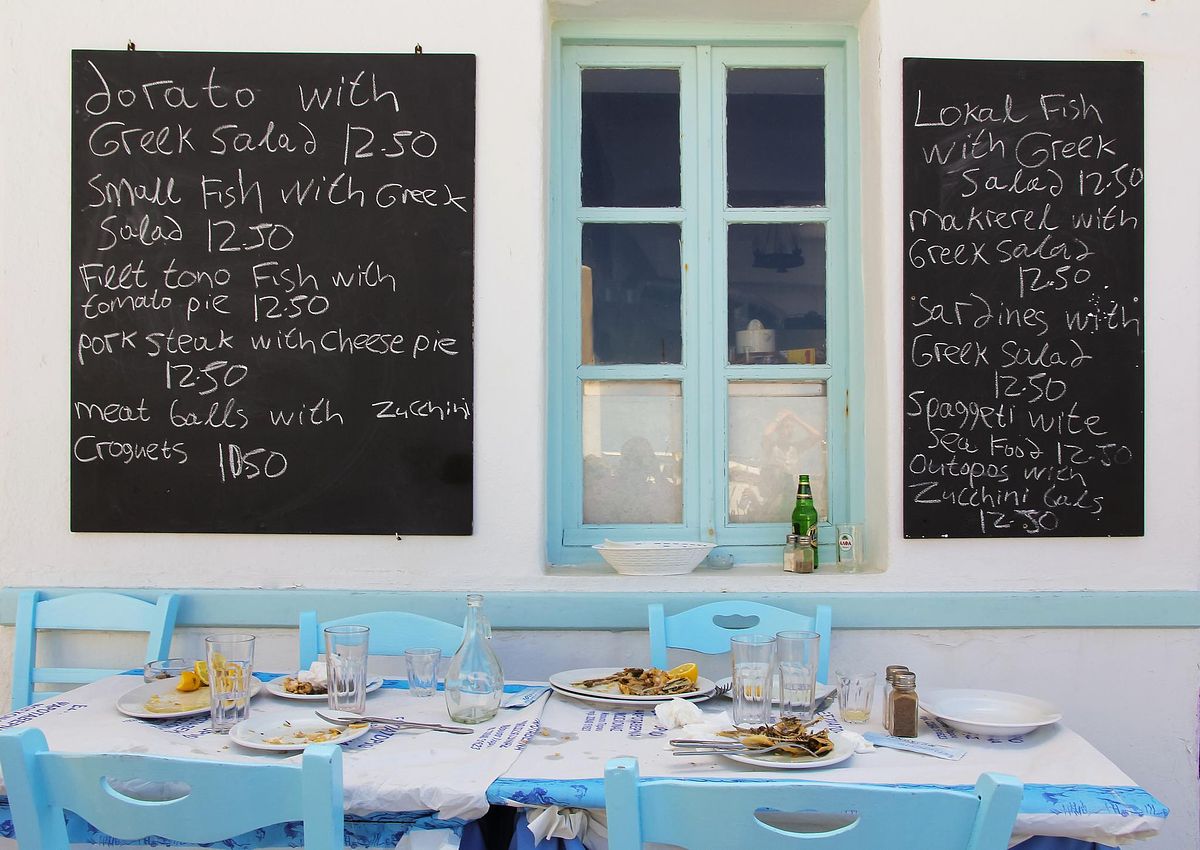 dorato with
Greek Salad 12.50
Small Fish with Greek
Salad 12.50
Filet tono Fish with
tomato pie 12.50
pork steak with Cheese pie
12.50
meat balls with Zucchini
Croquets 10.50
Lokal Fish
with Greek
Salad 12.50
makrerel with
Greek salad
12.50
Sardines with
Greek Salad
12.50
Spaggeti wite
Sea Food 12.50
Outopos with
Zucchini bals
12.50